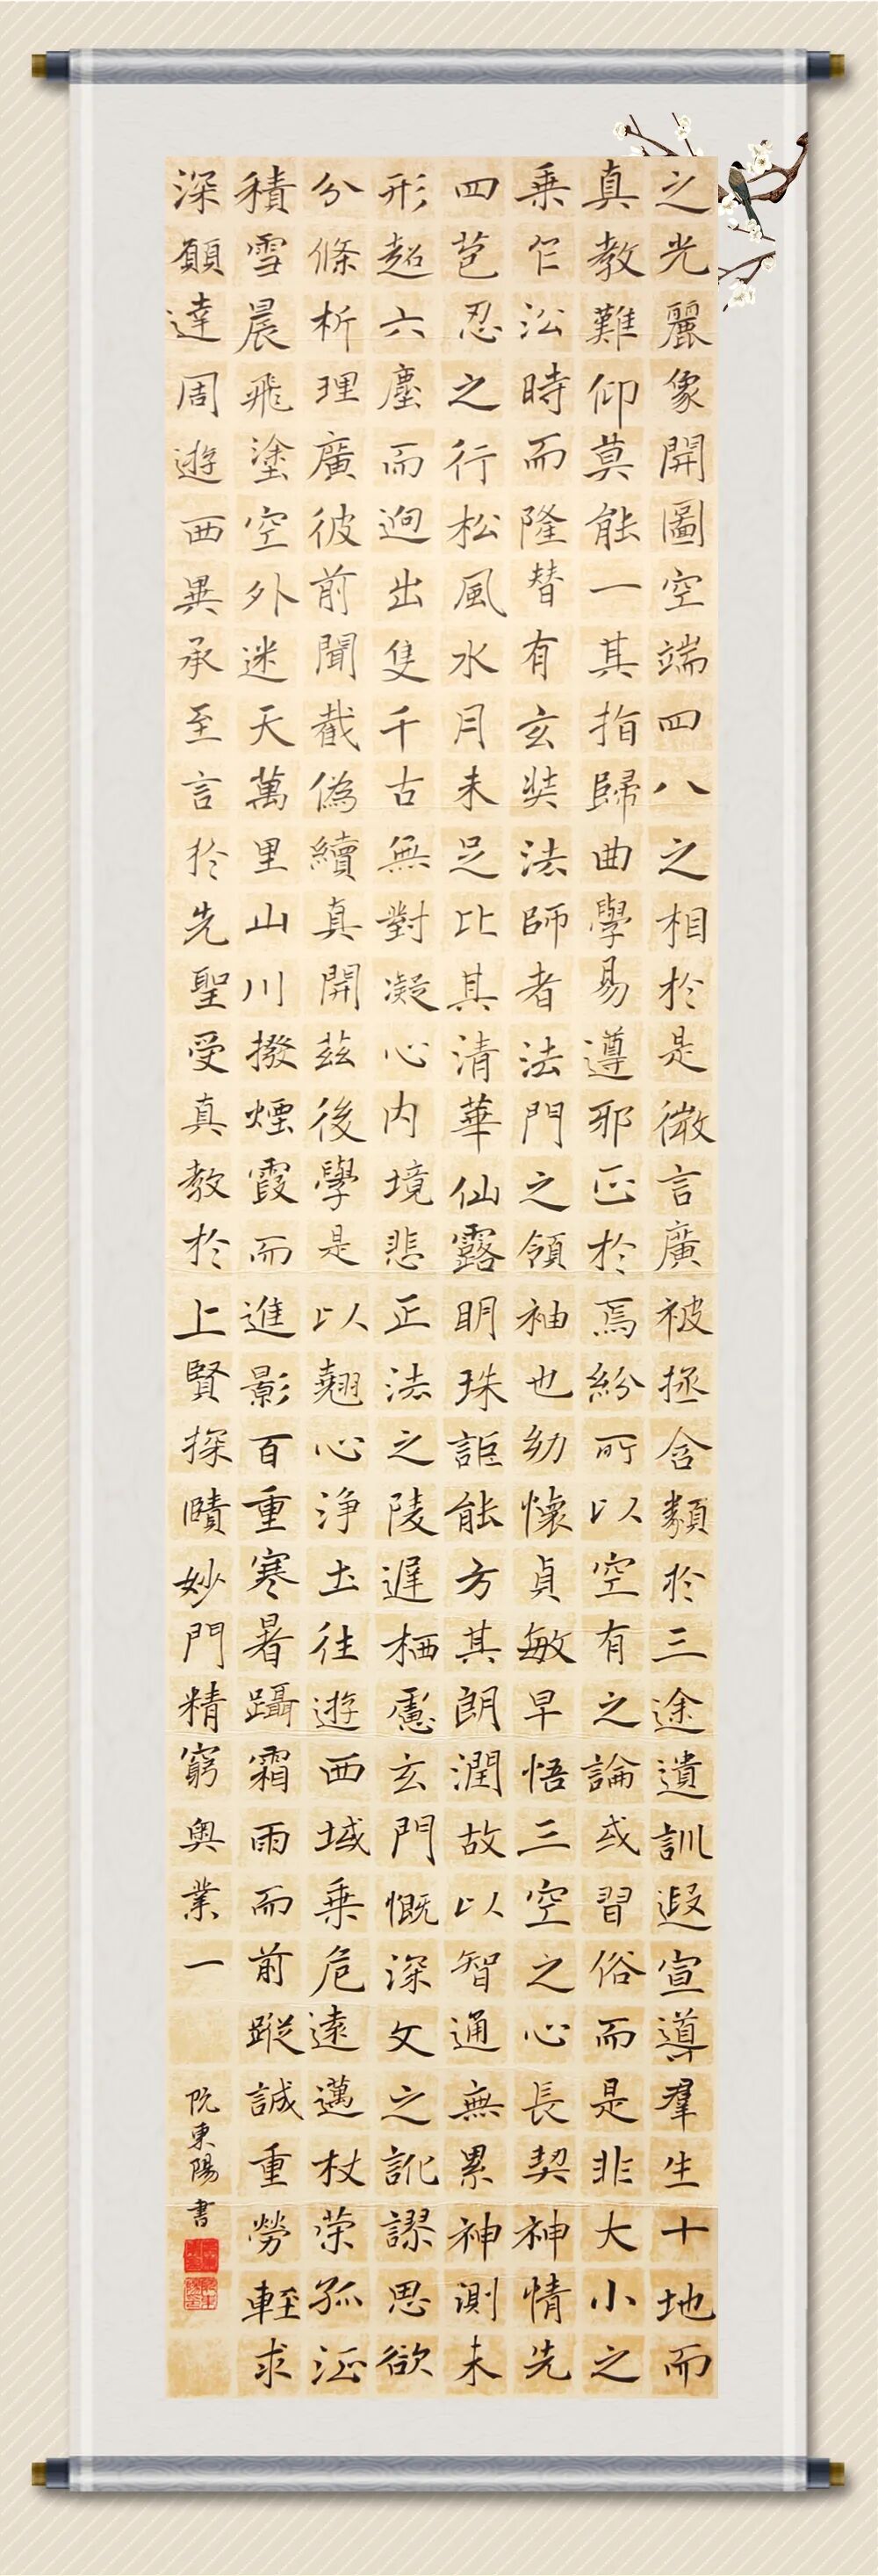 之光麗象開圖空端四八之相於是微言廣被拯含類於三途遺訓遐宣導羣生十地而
真教難仰莫能一其指歸曲學易遵邪正於焉紛所以空有之論或習俗而是非大小之
乗乍沿時而隆替有玄奘法師者法門之領袖也幼懷貞敏早悟三空之心長契神情先
四苞忍之行松風水月未足比其清華仙露明珠詎能方其朗潤故以智通無累神測未
形超六塵而逈出隻千古無對凝心內境悲正法之陵遲栖慮玄門慨深文之訛謬思欲
分條析理廣彼前聞截偽續真開茲後學是以翹心淨土往遊西域乗危遠邁杖策孤征
積雪晨飛塗空外迷天萬里山川撥煙霞而進影百重寒暑躡霜雨而前蹤誠重勞輕求
深願達周遊西異承至言於先聖受真教於上賢探賾妙門精窮奧業一
阮東陽書